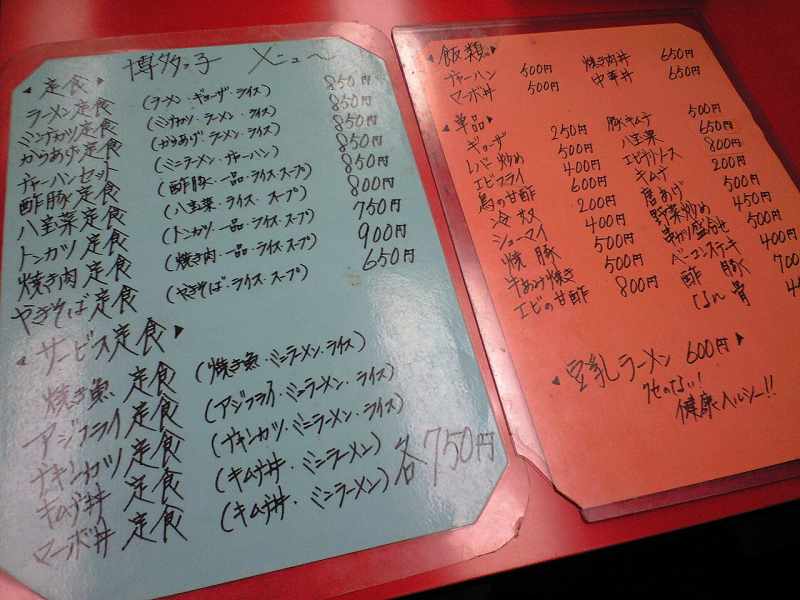 博多っ子 メニュー
◀定食▶
ラーメン定食 (ラーメン・ギョーザ・ライス) 850円
ミンチカツ定食 (ミンチカツ・ラーメン・ライス) 850円
からあげ定食 (からあげ・ラーメン・ライス) 850円
チャーハンセット (ミニラーメン・チャーハン) 850円
酢豚定食 (酢豚・一品・ライス・スープ) 850円
八宝菜定食 (八宝菜・ライス・スープ) 800円
トンカツ定食 (トンカツ・一品・ライス・スープ) 750円
焼き肉定食 (焼き肉・一品・ライス・スープ) 900円
やきそば定食 (やきそば・ライス・スープ) 650円
◀サービス定食▶
焼き魚定食 (焼き魚・ミニラーメン・ライス)
アジフライ定食 (アジフライ・ミニラーメン・ライス)
チキンカツ定食 (チキンカツ・ミニラーメン・ライス)
キムチ丼定食 (キムチ丼・ミニラーメン)
マーボ丼定食 (キムチ丼・ミニラーメン) 各750円
◀飯類▶
チャーハン 500円 焼き肉丼 650円
マーボ丼 500円 中華丼 650円
◀単品▶
ギョーザ 250円 豚キムチ 500円
レバー炒め 500円 八宝菜 650円
エビフライ 400円 エビチリソース 800円
鳥の甘酢 600円 キムチ 200円
冷奴 200円 唐あげ 500円
シューマイ 400円 野菜炒め 450円
焼豚 500円 500円
牛あみ焼き 500円 ベーコンステーキ 400円
エビの甘酢 800円 酢豚 700
◀豆乳ラーメン 600円▶
クセのない!
健康ヘルシー!!